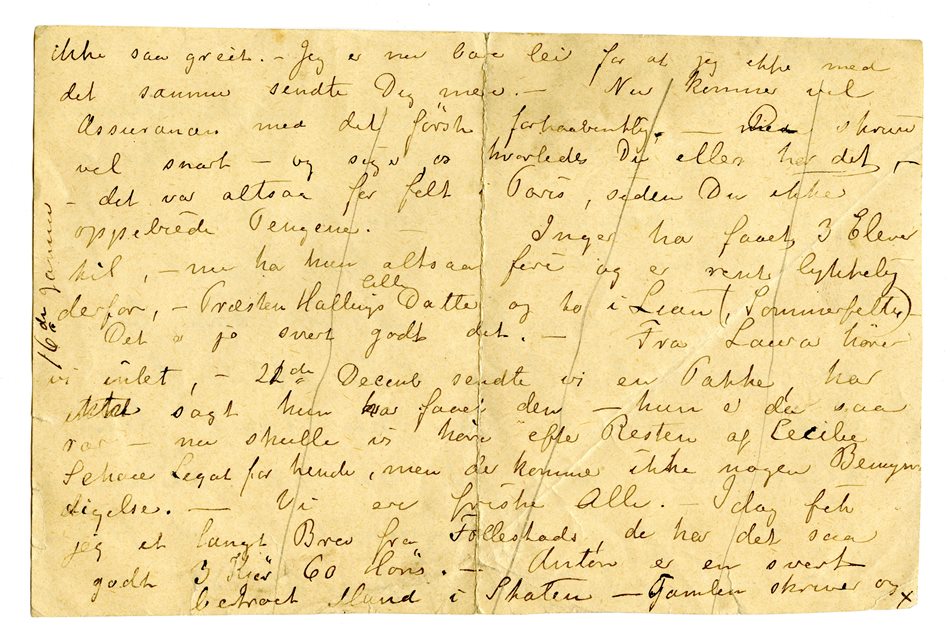 ikke saa greit. – Jeg er nu bare lei for at jeg ikke med
det samme sendte Dig mere. – Nu kommer vel
Assurancen med det første forhaabentlig. – skriver
vel snart – og siger os hvorledes Du ellers har det, –
– det var altsaa for fælt i Paris, siden Du ikke
oppebiede Pengene. – Inger har faaet 3 Elever
til, – nu har hun altsaa fire og er rent lykkelig
derfor, – Præsten Hallings Datter og to i Lian (Sommerfelts) –
Lilly
Det er jo svert godt det. – Fra Laura hører
vi intet, – 22de Decemb sendte vi en Pakke, har
ikke sagt hun har faaet den – hun er da saa
rar – nu skulle vi høre efter Resten af Cecilie
Schous Legat for hende, men der kommer ikke nogen Bemyn-
digelse. – Vi ere friske Alle. – Idag fik
jeg et langt Brev fra Follestads, de har det saa
godt 3 Kiør 60 Høns. – Anton er en svert
betroet Mand i Staten – Gamlen skriver og x
16de Januar